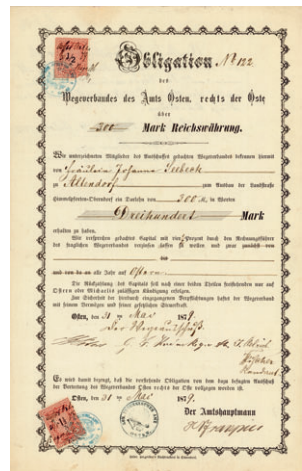 Obligation No 122
des
Wegeverbandes des Amts Osten, rechts der Oste
über
300 Mark Reichswährung.
Wir unterzeichneten Mitglieder des Ausschusses gedachten Wegeverbandes bekennen hiermit
von Fräulein Johanna
zu Altendorf zum Ausbau der Landstraße
Himmelpforten-Oberndorf ein Darlehn von 300 M, in Worten
Dreihundert Mark
erhalten zu haben.
Wir versprechen gedachtes Capital mit Procent durch den Rechnungsführer
des fraglichen Wegeverbandes verzinsen zu wollen und zwar zunächst von
bis
und von da an alle Jahr auf Ostern
Die Rückzahlung des Capitals soll nach einer beiden Theilen freistehenden nur auf
Ostern oder Michaelis zulässigen Kündigung erfolgen.
Zur Sicherheit der hierdurch eingegangenen Verpflichtungen haftet der Wegeverband
mit seinem Vermögen und seiner gesetzlichen Steuerkraft.
Osten, den 31 ten Mai 1879.
Der Wegeausschuß.
Es wird damit bezeugt, daß die vorstehende Obligation von dem dazu befugten Ausschuß
der Vertretung des Wegeverbandes Osten rechts der Oste vollzogen worden ist.
Osten, den 31 ten Mai 1879.
Der Amtshauptmann